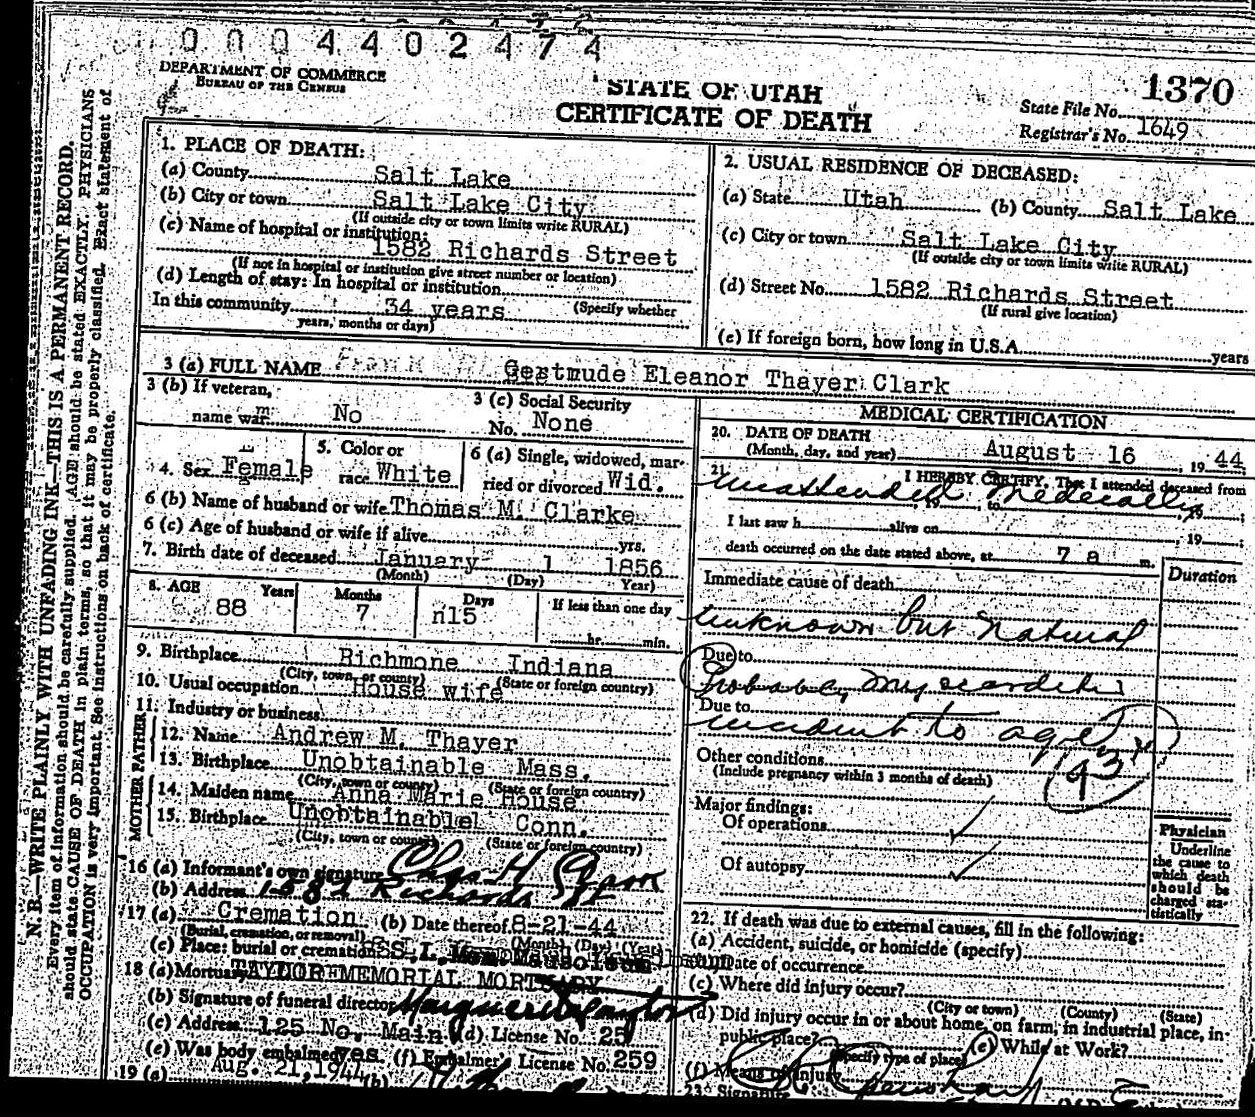 0 0 0 4 4 0 2 4 7 4
DEPARTMENT OF COMMERCE
BUREAU OF THE CENSUS
STATE OF UTAH
CERTIFICATE OF DEATH
State File No. 1370
Registrar's No. 1649
N. B.—WRITE PLAINLY WITH UNFADING INK—THIS IS A PERMANENT RECORD.
Every item of information should be carefully supplied. AGE should be stated EXACTLY. PHYSICIANS
should state CAUSE OF DEATH in plain terms, so that it may be properly classified. Exact statement of
OCCUPATION is very important. See instructions on back of certificate.
1. PLACE OF DEATH:
(a) County Salt Lake
(b) City or town Salt Lake City
(If outside city or town limits write RURAL)
(c) Name of hospital or institution:
1582 Richards Street
(If not in hospital or institution give street number or location)
(d) Length of stay: In hospital or institution
In this community 34 years (Specify whether
years, months or days)
2. USUAL RESIDENCE OF DECEASED:
(a) State Utah (b) County Salt Lake
(c) City or town Salt Lake City
(If outside city or town limits write RURAL)
(d) Street No. 1582 Richards Street
(If rural give location)
(e) If foreign born, how long in U.S.A. years
3 (a) FULL NAME Gertrude Eleanor Thayer Clark
3 (b) If veteran,
name war No
3 (c) Social Security
No. None
4. Sex Female
5. Color or
race White
6 (a) Single, widowed, mar-
ried or divorced Wid.
6 (b) Name of husband or wife Thomas M. Clarke
6 (c) Age of husband or wife if alive yrs.
7. Birth date of deceased January 1 1856
(Month) (Day) Year)
8. AGE Years Months Days If less than one day
88 7 n15 hr. min.
9. Birthplace Richmone Indiana
(City, town, or county) (State or foreign country)
10. Usual occupation House wife
11. Industry or business
FATHER
12. Name Andrew M. Thayer
13. Birthplace Unobtainable Mass.
(City, town or county) (State or foreign country)
MOTHER
14. Maiden name Anna Marie House
15. Birthplace Unobtainablel Conn.
(City, town or county) (State or foreign country)
16 (a) Informant's own signature Chas H
(b) Address 1582 Richards St
17 (a) Cremation (b) Date thereof 8-21-44
(Burial, cremation, or removal) (Month) (Day) (Year)
(c) Place: burial or cremation S.L. Mausoleum
18 (a) Mortuary TAYLOR MEMORIAL MORTUARY
(b) Signature of funeral director Marguerite
(c) Address 125 No. Main (d) License No. 25
(e) Was body embalmed yes (f) Embalmer's License No. 259
19 (a) Aug. 21, 1944 (b)
MEDICAL CERTIFICATION
20. DATE OF DEATH
(Month, day, and year) August 16, 1944
21. I HEREBY CERTIFY, That I attended deceased from
Unattended Medically
, 19 , to , 19 ;
I last saw h alive on , 19 ;
death occurred on the date stated above, at 7 a m.
Duration
Immediate cause of death
Unknown but Natural
Due to
Probably Myocarditis
Due to
incident to age
93
Other conditions
(Include pregnancy within 3 months of death)
Major findings:
Of operations
Of autopsy
Physician
Underline
the cause to
which death
should be
charged sta-
tistically
22. If death was due to external causes, fill in the following:
(a) Accident, suicide, or homicide (specify)
Date of occurrence
(c) Where did injury occur?
(City or town) (County) (State)
(d) Did injury occur in or about home, on farm, in industrial place, in-
public place?
(Specify type of place) (e) While at Work?
(f) Means of injury
23. Signature